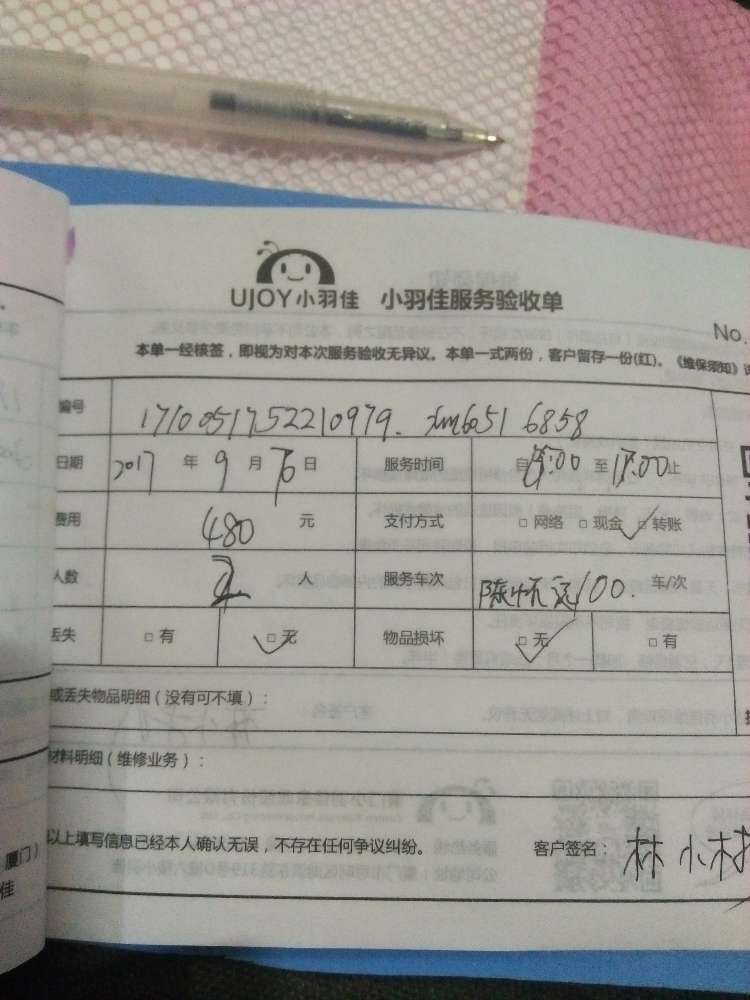 UJOY小羽佳 小羽佳服务验收单
No.
本单一经核签，即视为对本次服务验收无异议。本单一式两份，客户留存一份(红)。《维保须知》
编号 1710051752210979. xm6051 6858
日期 2017 年 9 月 日 服务时间 自 :00 至 17:00止
费用 480 元 支付方式 □ 网络 □ 现金 □ 转账
人数 人 服务车次 陈怀远100. 车/次
丢失 □ 有 □ 无 物品损坏 □ 无 □ 有
或丢失物品明细（没有可不填）：
材料明细（维修业务）：
以上填写信息已经本人确认无误，不存在任何争议纠纷。 客户签名： 林小村
厦门）
佳